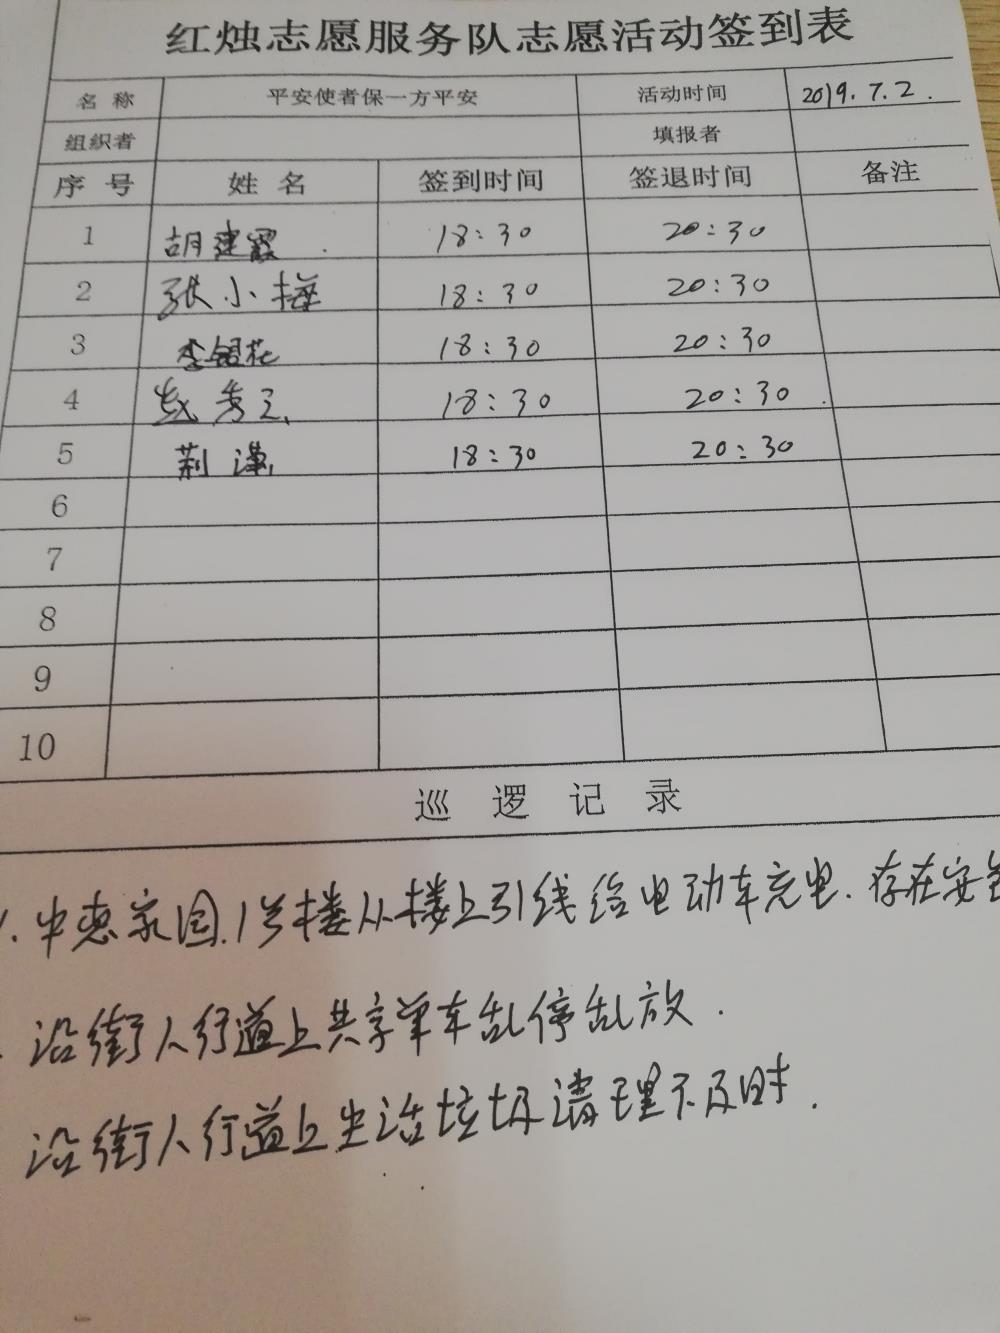 红烛志愿服务队志愿活动签到表
名称 平安使者保一方平安 活动时间 2019.7.2.
组织者 填报者
序号 姓名 签到时间 签退时间 备注
1 胡建霞 18:30 20:30
2 张小梅 18:30 20:30
3 李银花 18:30 20:30
4 18:30 20:30
5 荆 18:30 20:30
6
7
8
9
10
巡逻记录
1.中惠家园.1号楼从楼上引线给电动车充电.存在安全
沿街人行道上共享单车乱停乱放.
沿街人行道上生活垃圾清理不及时.